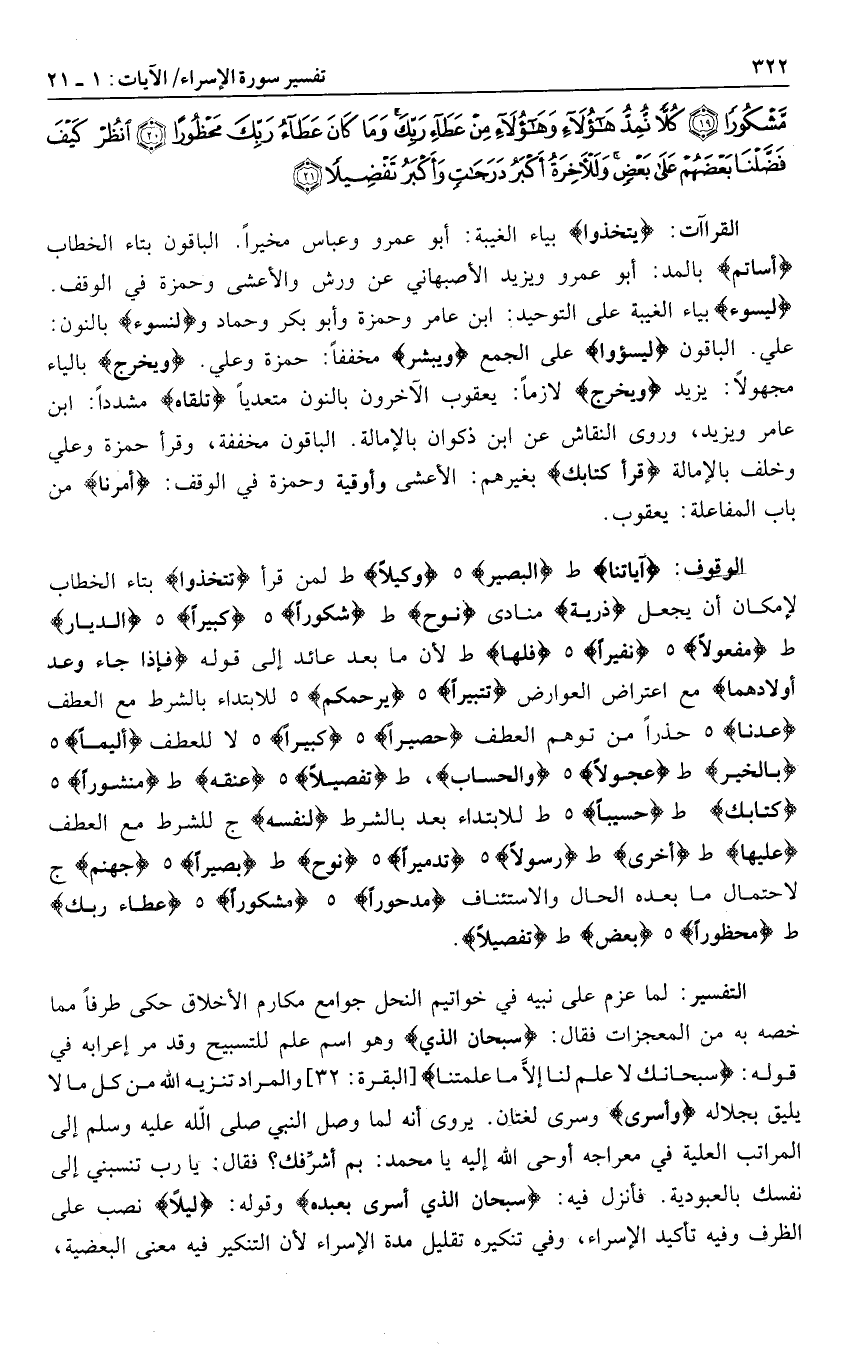 ٣٢٢
تفسير سورة الإسراء/ الآيات: ١ - ٢١
مَّشْكُورًا ﴿١٩﴾ كُلًّا نُّمِدُّ هَٰٓؤُلَآءِ وَهَٰٓؤُلَآءِ مِنْ عَطَآءِ رَبِّكَ ۚ وَمَا كَانَ عَطَآءُ رَبِّكَ مَحْظُورًا ﴿٢٠﴾ ٱنظُرْ كَيْفَ
فَضَّلْنَا بَعْضَهُمْ عَلَىٰ بَعْضٍ ۚ وَلَلْءَاخِرَةُ أَكْبَرُ دَرَجَٰتٍ وَأَكْبَرُ تَفْضِيلًا ﴿٢١﴾
القراآت: ﴿يتخذوا﴾ بياء الغيبة: أبو عمرو وعباس مخيراً. الباقون بتاء الخطاب
﴿أساتم﴾ بالمد: أبو عمرو ويزيد الأصبهاني عن ورش والأعشى وحمزة في الوقف.
﴿ليسوء﴾ بياء الغيبة على التوحيد: ابن عامر وحمزة وأبو بكر وحماد و﴿لنسوء﴾ بالنون:
علي. الباقون ﴿ليسؤوا﴾ على الجمع ﴿ويبشر﴾ مخففاً: حمزة وعلي. ﴿ويخرج﴾ بالياء
مجهولاً: يزيد ﴿ويخرج﴾ لازماً: يعقوب الآخرون بالنون متعدياً ﴿تلقاه﴾ مشدداً: ابن
عامر ويزيد، وروى النقاش عن ابن ذكوان بالإمالة. الباقون مخففة، وقرأ حمزة وعلي
وخلف بالإمالة ﴿قرأ كتابك﴾ بغيرهم: الأعشى وأوقية وحمزة في الوقف: ﴿أمرنا﴾ من
باب المفاعلة: يعقوب.
الوقوف: ﴿آياتنا﴾ ط ﴿البصير﴾ ٥ ﴿وكيلاً﴾ ط لمن قرأ ﴿تتخذوا﴾ بتاء الخطاب
لإمكان أن يجعل ﴿ذرية﴾ منادى ﴿نوح﴾ ط ﴿شكوراً﴾ ٥ ﴿كبيراً﴾ ٥ ﴿الديار﴾
ط ﴿مفعولاً﴾ ٥ ﴿نفيراً﴾ ٥ ﴿فلها﴾ ط لأن ما بعد عائد إلى قوله ﴿فإذا جاء وعد
أولادهما﴾ مع اعتراض العوارض ﴿تتبيراً﴾ ٥ ﴿يرحمكم﴾ ٥ للابتداء بالشرط مع العطف
﴿عدنا﴾ ٥ حذراً من توهم العطف ﴿حصيراً﴾ ٥ ﴿كبيراً﴾ ٥ لا للعطف ﴿أليماً﴾ ٥
﴿بالخير﴾ ط ﴿عجولاً﴾ ٥ ﴿والحساب﴾، ط ﴿تفصيلاً﴾ ٥ ﴿عنقه﴾ ط ﴿منشوراً﴾ ٥
﴿كتابك﴾ ط ﴿حسيباً﴾ ٥ ط للابتداء بعد بالشرط ﴿لنفسه﴾ ج للشرط مع العطف
﴿عليها﴾ ط ﴿أخرى﴾ ط ﴿رسولاً﴾ ٥ ﴿تدميراً﴾ ٥ ﴿نوح﴾ ط ﴿بصيراً﴾ ٥ ﴿جهنم﴾ ج
لاحتمال ما بعده الحال والاستئناف ﴿مدحوراً﴾ ٥ ﴿مشكوراً﴾ ٥ ﴿عطاء ربك﴾
ط ﴿محظوراً﴾ ٥ ﴿بعض﴾ ط ﴿تفصيلاً﴾.
التفسير: لما عزم على نبيه في خواتيم النحل جوامع مكارم الأخلاق حكى طرفاً مما
خصه به من المعجزات فقال: ﴿سبحان الذي﴾ وهو اسم علم للتسبيح وقد مر إعرابه في
قوله: ﴿سبحانك لا علم لنا إلاَّ ما علمتنا﴾ [البقرة: ٣٢] والمراد تنزيه الله من كل ما لا
يليق بجلاله ﴿وأسرى﴾ وسرى لغتان. يروى أنه لما وصل النبي صلى اللّه عليه وسلم إلى
المراتب العلية في معراجه أوحى الله إليه يا محمد: بم أشرِّفك؟ فقال: يا رب تنسبني إلى
نفسك بالعبودية. فأنزل فيه: ﴿سبحان الذي أسرى بعبده﴾ وقوله: ﴿ليلاً﴾ نصب على
الظرف وفيه تأكيد الإسراء، وفي تنكيره تقليل مدة الإسراء لأن التنكير فيه معنى البعضية،